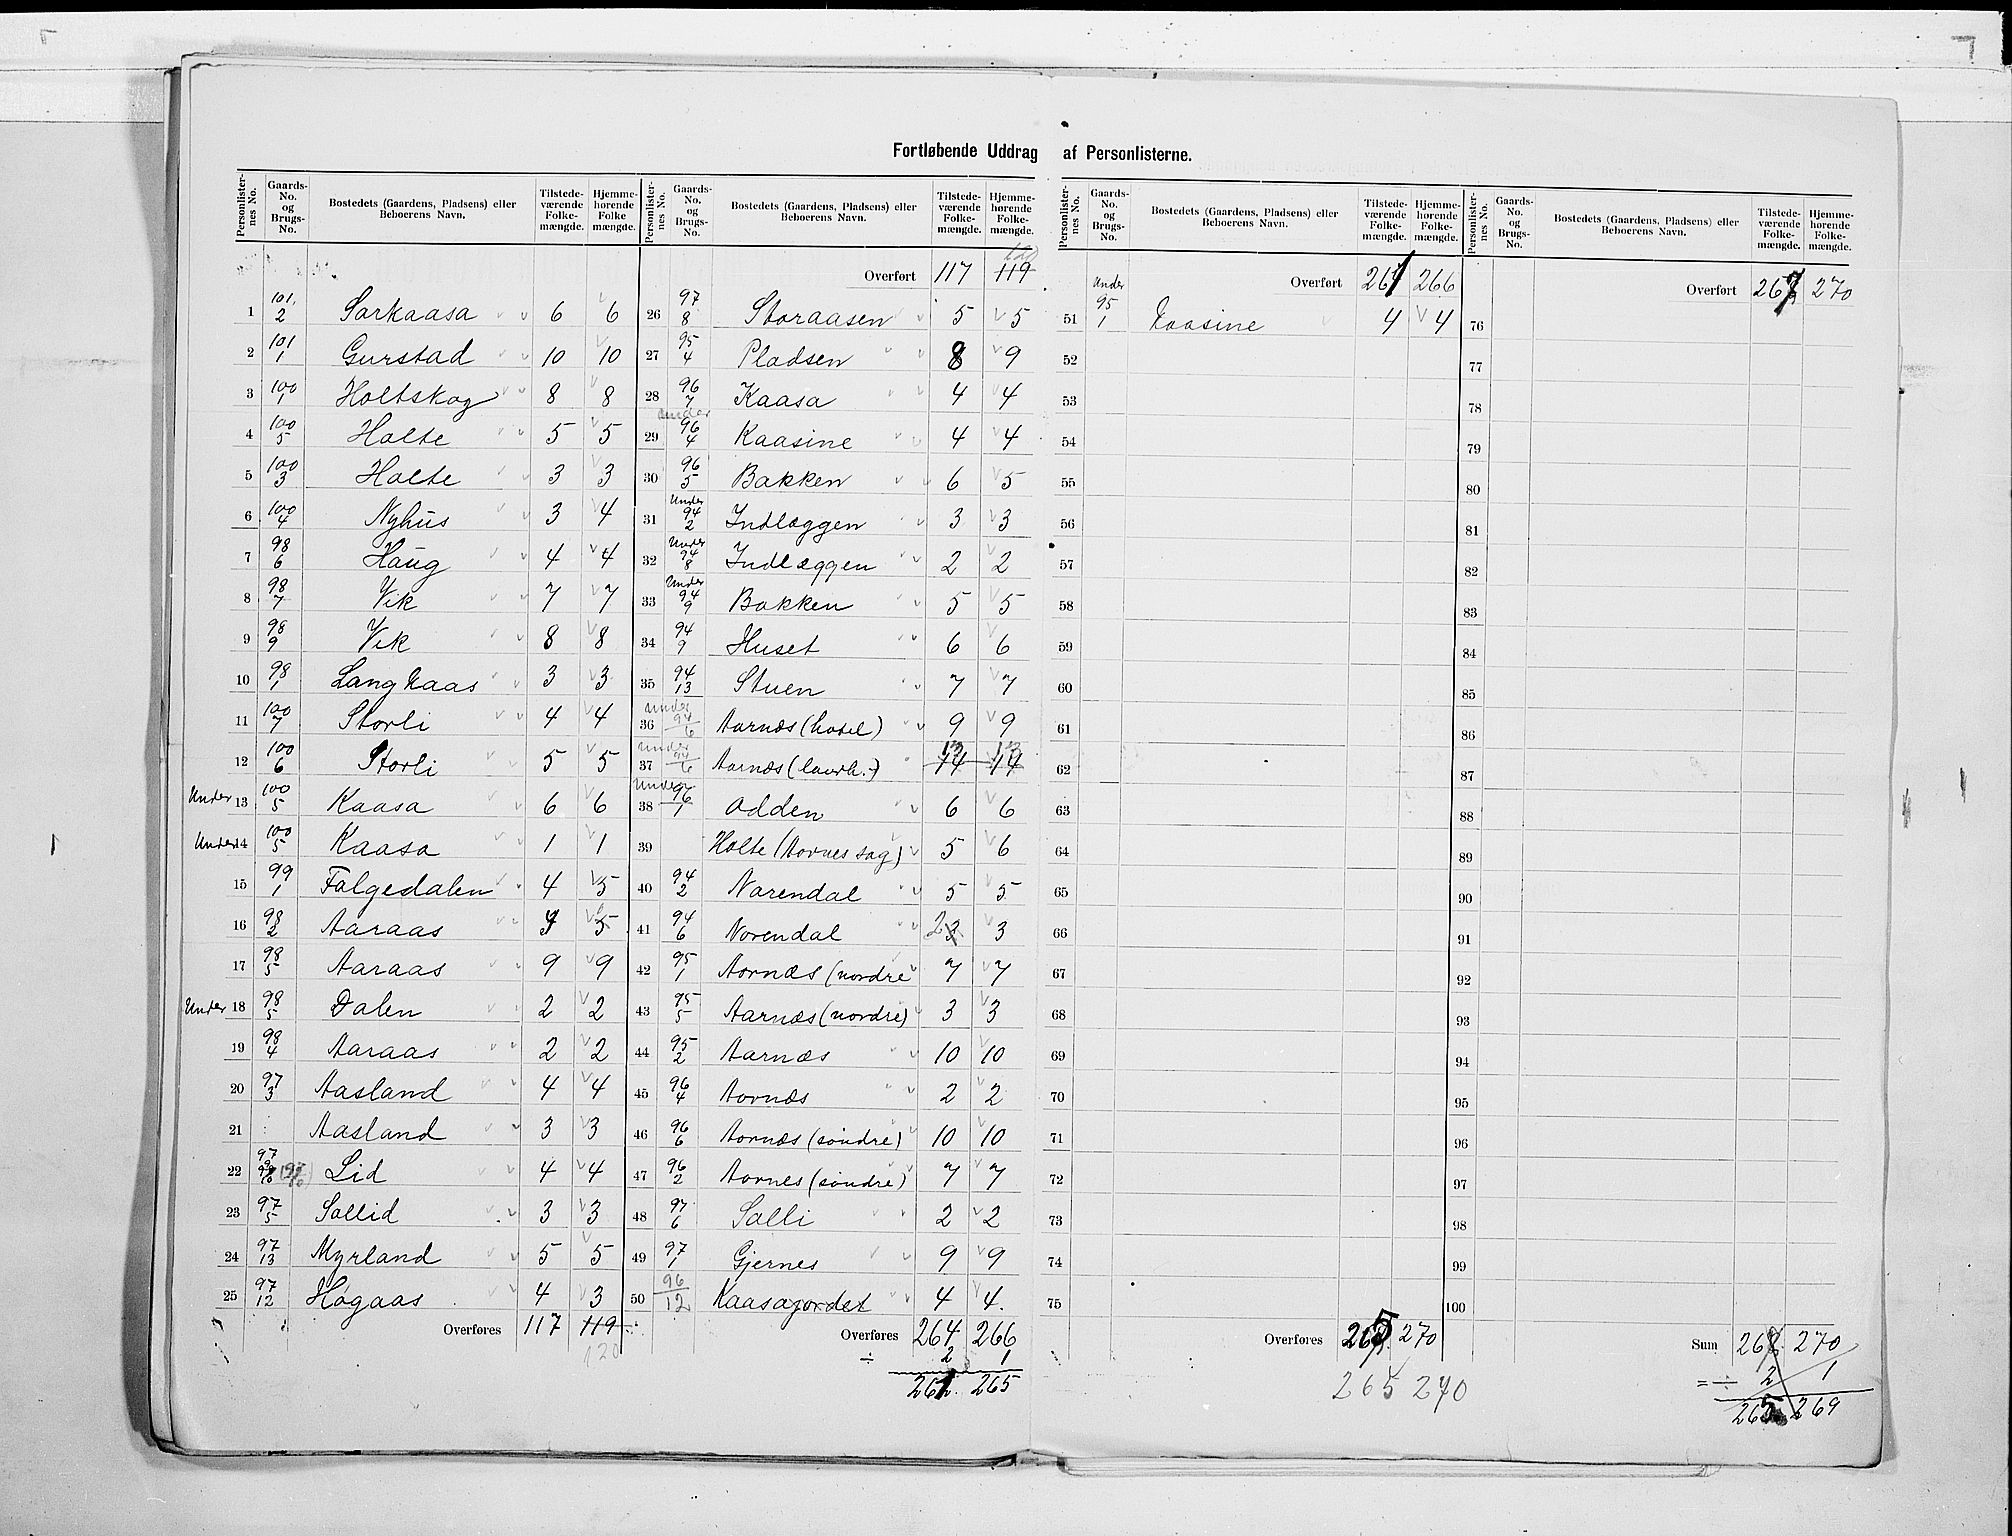 Fortløbende Uddrag af Personlisterne.
Personlister-nes No. Gaards-No. og Brugs-No. Bostedets (Gaardens, Pladsens) eller Beboerens Navn. Tilstede-værende Folke-mængde. Hjemme-hørende Folke mængde.
1 101, 2 Sarkaasa 6 6
2 101 1 Gurstad 10 10
3 100 1 Holtskog 8 8
4 100 5 Holte 5 5
5 100 3 Holte 3 3
6 100 4 Nyhus 3 4
7 98 6 Haug 4 4
8 98 7 Vik 7 7
9 98 9 Vik 8 8
10 98 1 Langkaas 3 3
11 100 7 Storli 4 4
12 100 6 Storli 5 5
Under 13 100 5 Kaasa 6 6
Under 14 100 5 Kaasa 1 1
15 99 1 Falgedalen 4 5
16 98 2 Aaraas 5
17 98 5 Aaraas 9 9
Under 18 98 5 Dalen 2 2
19 98 4 Aaraas 2 2
20 97 3 Aasland 4 4
21 Aasland 3 3
22 97 Lid 4 4
23 97 5 Sollid 3 3
24 97 13 Myrland 5 5
25 97 12 Høgaas 4 3
Overføres 117 119
120
Personlister-nes No. Gaards-No. og Brugs-No. Bostedets (Gaardens, Pladsens) eller Beboerens Navn. Tilstede-værende Folke-mængde. Hjemme-hørende Folke-mængde.
120
Overført 117 119
26 97 8 Storaasen 5 5
27 95 4 Pladsen 8 9
28 96 7 Kaasa 4 4
29 under 96 4 Kaasine 4 4
30 96 5 Bakken 6 5
31 Under 94 2 Indlæggen 3 3
32 Under 94 8 Indlæggen 2 2
33 Under 94 9 Bakken 5 5
34 94 9 Huset 6 6
35 94 13 Stuen 7 7
36 under 94 6 Aarnæs (hotel) 9 9
37 under 94 6 Aarnæs 14 14
38 Under 96 1 Odden 6 6
39 Holte (Aarnes sag) 5 6
40 94 2 Norendal 5 5
41 94 6 Norendal 2 3 3
42 95 1 Aarnæs (nordre 7 7
43 95 5 Aarnæs (nordre) 3 3
44 95 2 Aarnæs 10 10
45 96 4 Aarnæs 2 2
46 96 6 Aarnæs (søndre) 10 10
47 96 2 Aarnes (søndre) 7 7
48 97 6 Solli 2 2
49 97 1 Gjernes 9 9
50 96 12 Kaasajordet 4 4.
Overføres 264 266
÷ 2 1
261. 265
Personlister-nes No. Gaards-No. og Brugs-No. Bostedets (Gaardens, Pladsens) eller Beboerens Navn. Tilstede-værende Folke-mængde. Hjemme-hørende Folke-mængde.
Overført 261 266
51 Under 95 1 Kaasine 4 4
52
53
54
55
56
57
58
59
60
61
62
63
64
65
66
67
68
69
70
71
72
73
74
75
Overføres 265 270
265 270
Personlister-nes No. Gaards-No. og Brugs-No. Bostedets (Gaardens, Pladsens) eller Beboerens Navn. Tilstede-værende Folke-mængde. Hjemme-hørende Folke-mængde.
Overført 267 270
76
77
78
79
80
81
82
83
84
85
86
87
88
89
90
91
92
93
94
95
96
97
98
99
100
Sum 268 270
= ÷ 2 1
265 269